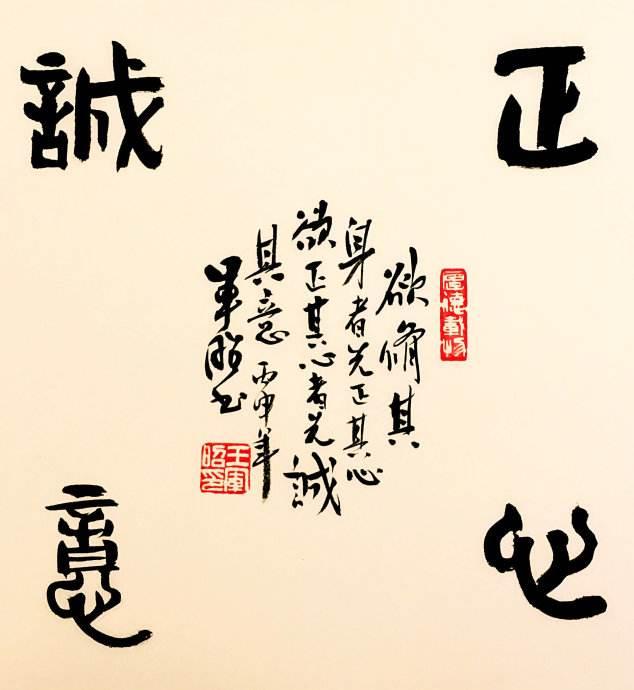 正心
誠意
厚德載物
欲脩其
身者先正其心
欲正其心者先誠
其意 丙申年
軍昭书
王軍昭印